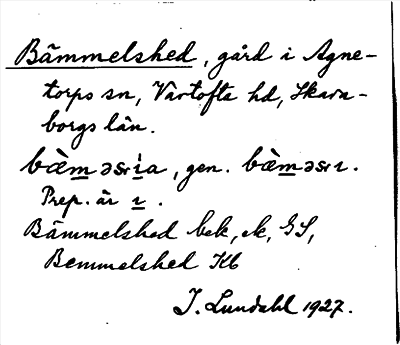 Bämmelshed, gård i Agne-
torps sn, Vartofta hd, Skara-
borgs län.
bæ̀m̲əsıi̲a, gen. bæ̀m̲əsıı.
Prep. är ı̲.
Bämmelshed bek, ek, GS,
Bemmelshed Kb
I. Lundahl 1927.